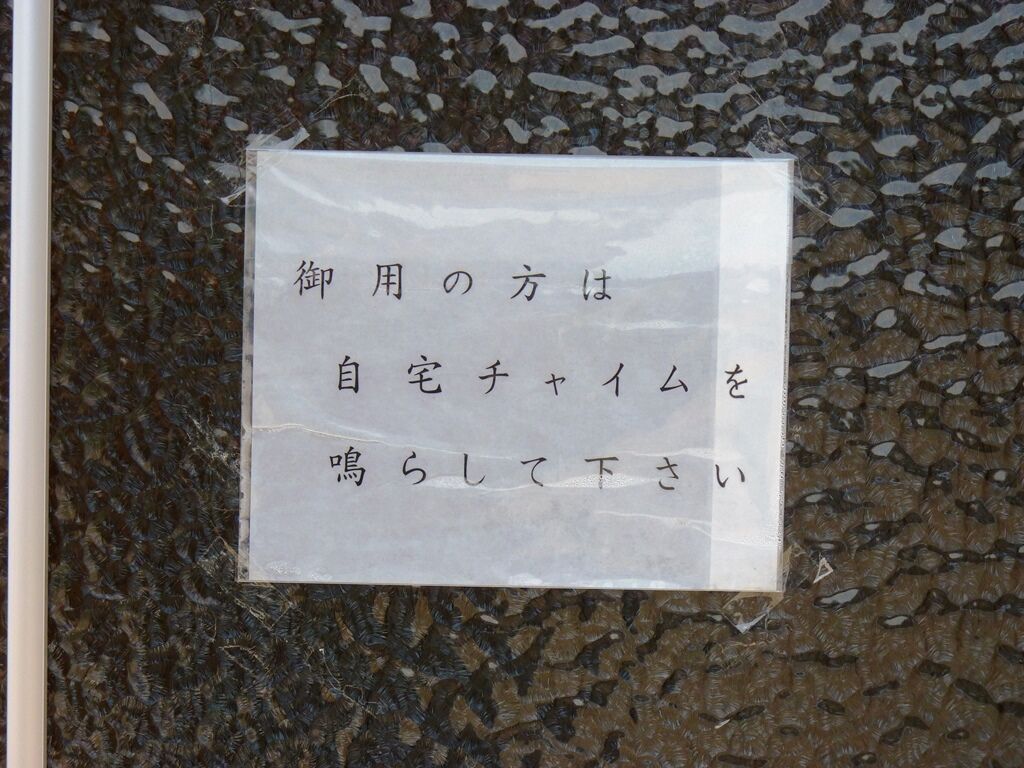 御用の方は
自宅チャイムを
鳴らして下さい